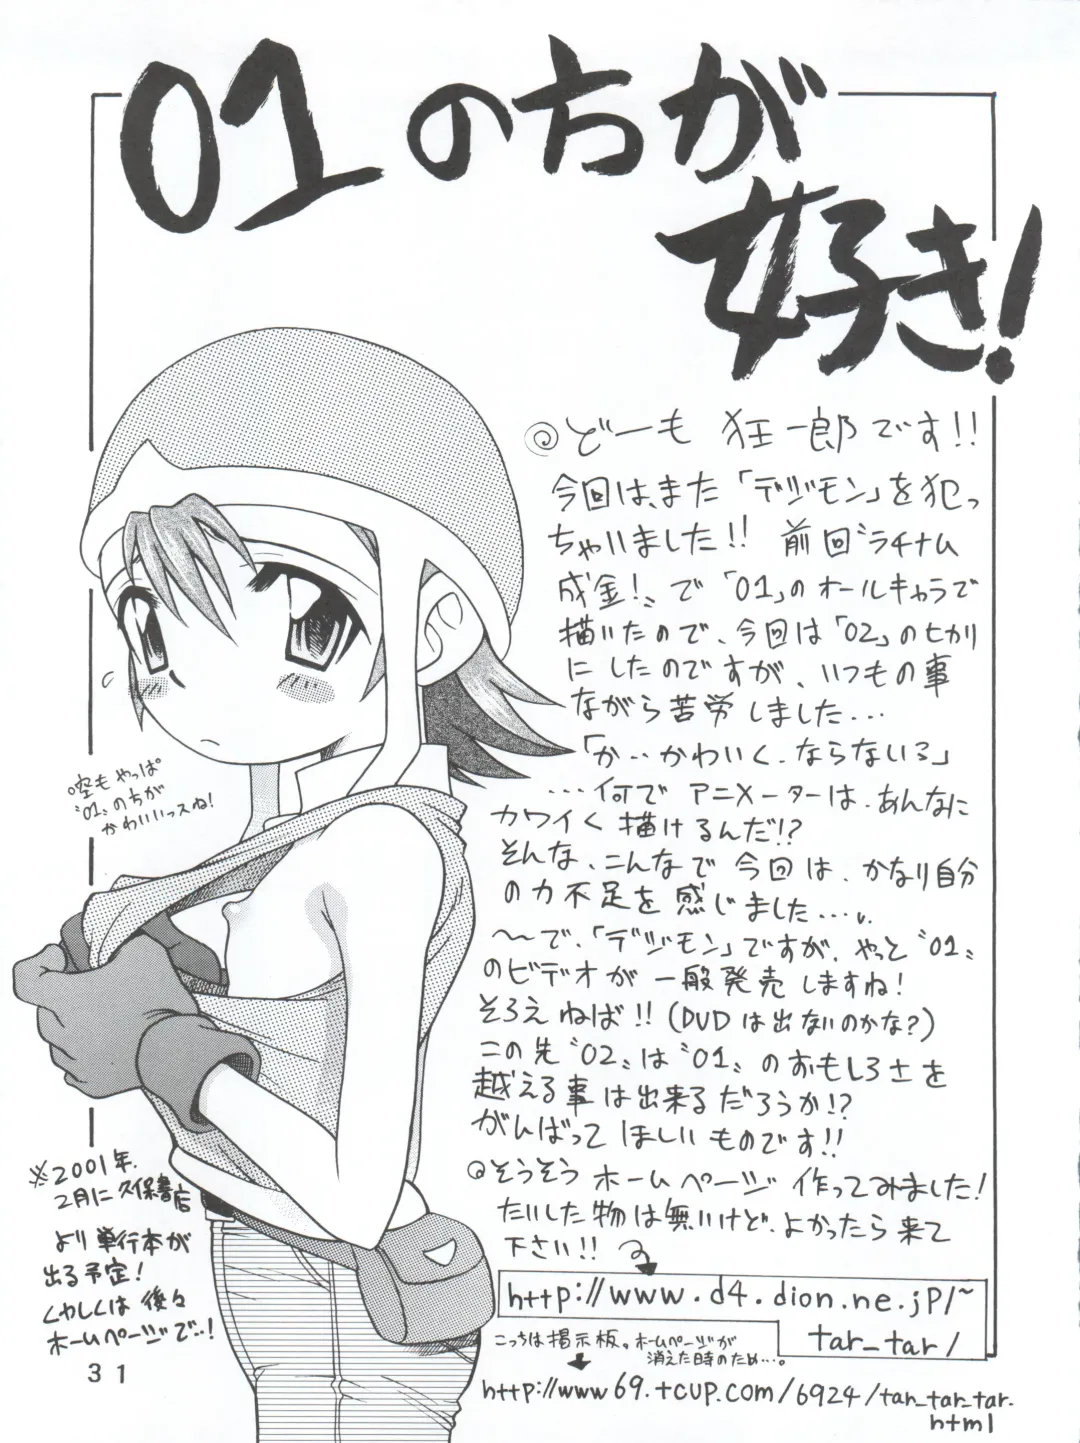 01の方が
好き!
どーも 狂一郎です!!
今回は、また「デジモン」を犯っ
ちゃいました!! 前回〝ラチナム
成金!〟で「01」のオールキャラで
描いたので、今回は「02」のヒカリ
にしたのですが、いつもの事
ながら苦労しました...
「か‥かわいく、ならないろ」
...何でアニメーターは、あんなに
カワイく描けるんだ!?
そんな、こんなで今回は、かなり自分
の力不足を感じました...
〜で、「デジモン」ですが、やっと〝01〟
のビデオが一般発売しますね!
そろえねば!!(DVDは出ないのかな?)
この先〝02〟は〝01〟のおもしろさを
越える事は出来るだろうか!?
がんばってほしいものです!!
そうそうホームページ作ってみました!
たいした物は無いけど、よかったら来て
下さい!!
http://www.d4.dion.ne.jp/~
tar_tar/
こっちは掲示板。ホームページが
消えた時のため...。
http://www69.tcup.com/6924/tan_tar_tar.
html
空もやっぱ
〝01〟の方が
かわいいっスね!
※2001年
2月に久保書店
より単行本が
出る予定!
くわしくは後々
ホームページで..!
31